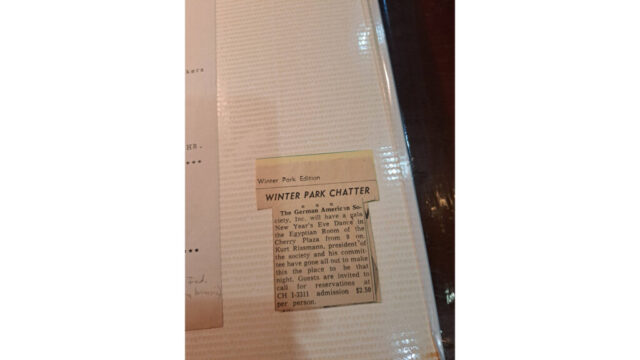 kers
HR.
****
***
Winter Park Edition
WINTER PARK CHATTER
* * *
The German American So-
ciety, Inc. will have a gala
New Year's Eve Dance in
the Egyptian Room of the
Cherry Plaza from 9 on.
Kurt Rissmann, president of
the society and his commit-
tee have gone all out to make
this the place to be that
night. Guests are invited to
call for reservations at
CH 1-3311 admission $2.50
per person.